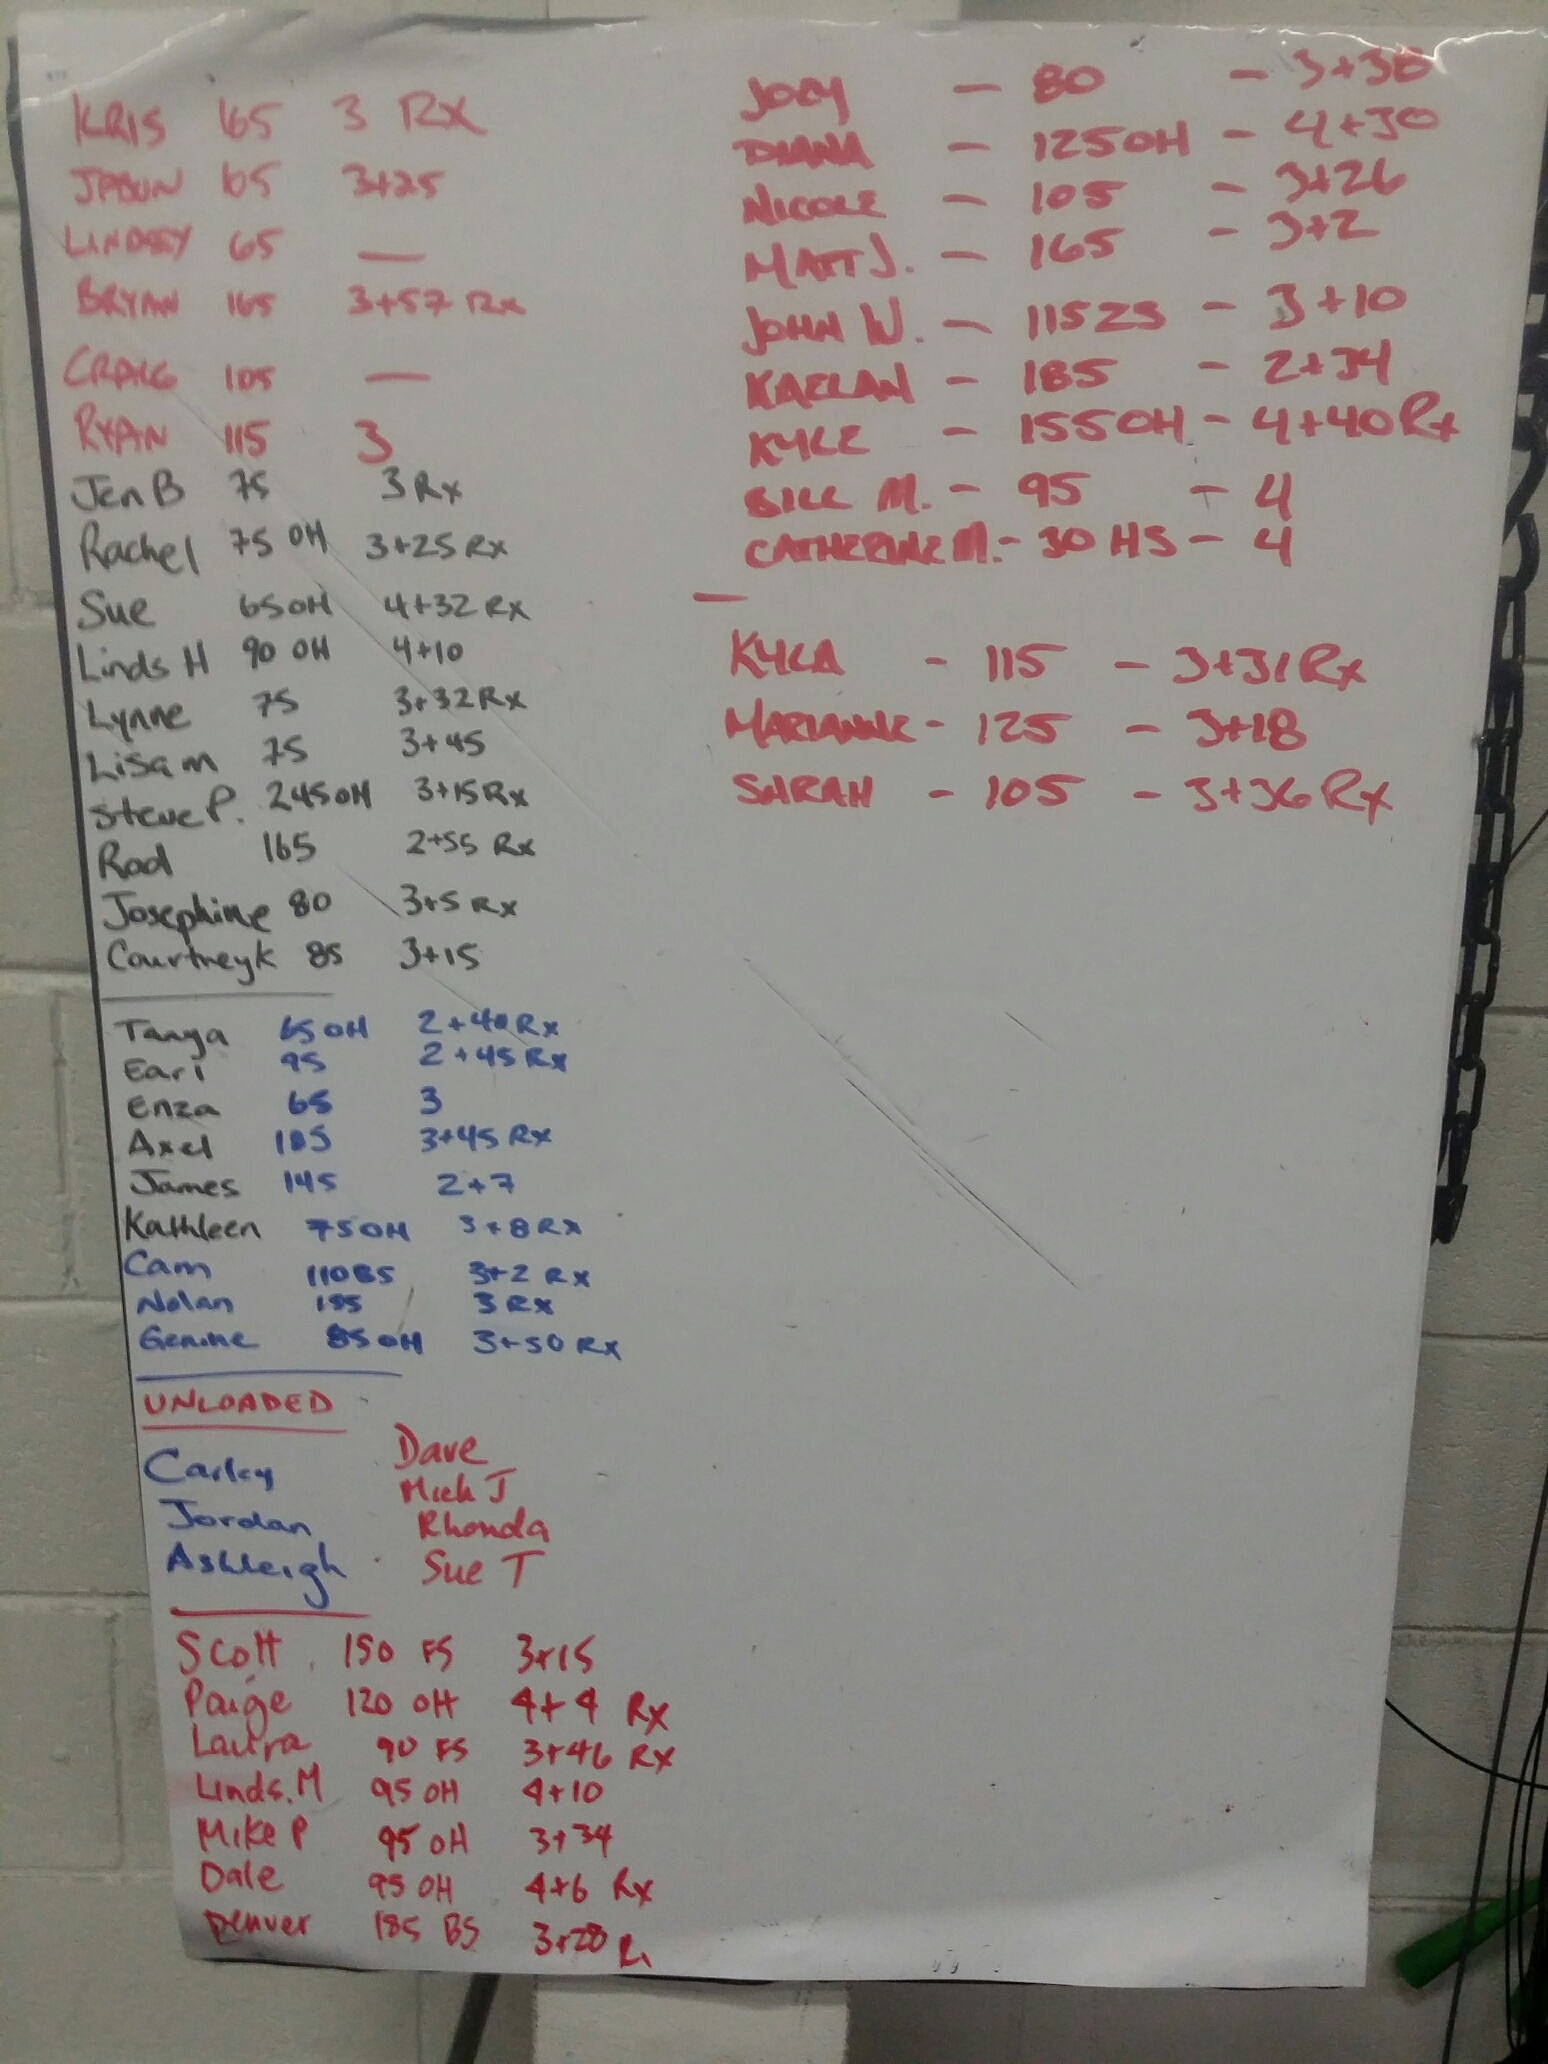 KRIS 165 3 Rx
JASON 65 3+25
LINDSEY 65 —
BRYAN 165 3+57 Rx
CRAIG 105 —
RYAN 115 3
Jen B 75 3 Rx
Rachel 75 OH 3+25 Rx
Sue 65 OH 4+32 Rx
Linds H 90 OH 4+10
Lynne 75 3+32 Rx
Lisa m 75 3+45
Steve P. 245 OH 3+15 Rx
Rod 165 2+55 Rx
Josephine 80 3+5 Rx
Courtney K 85 3+15
Tanya 65 OH 2+40 Rx
Earl 95 2+45 Rx
Enza 65 3
Axel 185 3+45 Rx
James 145 2+7
Kathleen 75 OH 3+8 Rx
Cam 110 BS 3+2 Rx
Nolan 155 3 Rx
Genine 85 OH 3+50 Rx
UNLOADED
Carley Dave
Jordan Mich J
Ashleigh Rhonda
Sue T
Scott 150 FS 3+15
Paige 120 OH 4+4 Rx
Laura 90 FS 3+46 Rx
Linds. M 95 OH 4+10
Mike P 95 OH 3+34
Dale 95 OH 4+6 Rx
Denver 185 BS 3+28 Rx
JOEY — 80 — 3+30
DIANA — 125 OH — 4+30
NICOLE — 105 — 3+26
MATT J. — 165 — 3+2
JOHN W. — 115 — 3+10
KAELAN — 185 — 2+34
KYLE — 155 OH — 4+40 Rx
BILL M. — 95 — 4
CATHERINE M. - 30 HS - 4
KYLA - 115 - 3+31 Rx
MARIANNE - 125 - 3+18
SARAH - 105 - 3+36 Rx